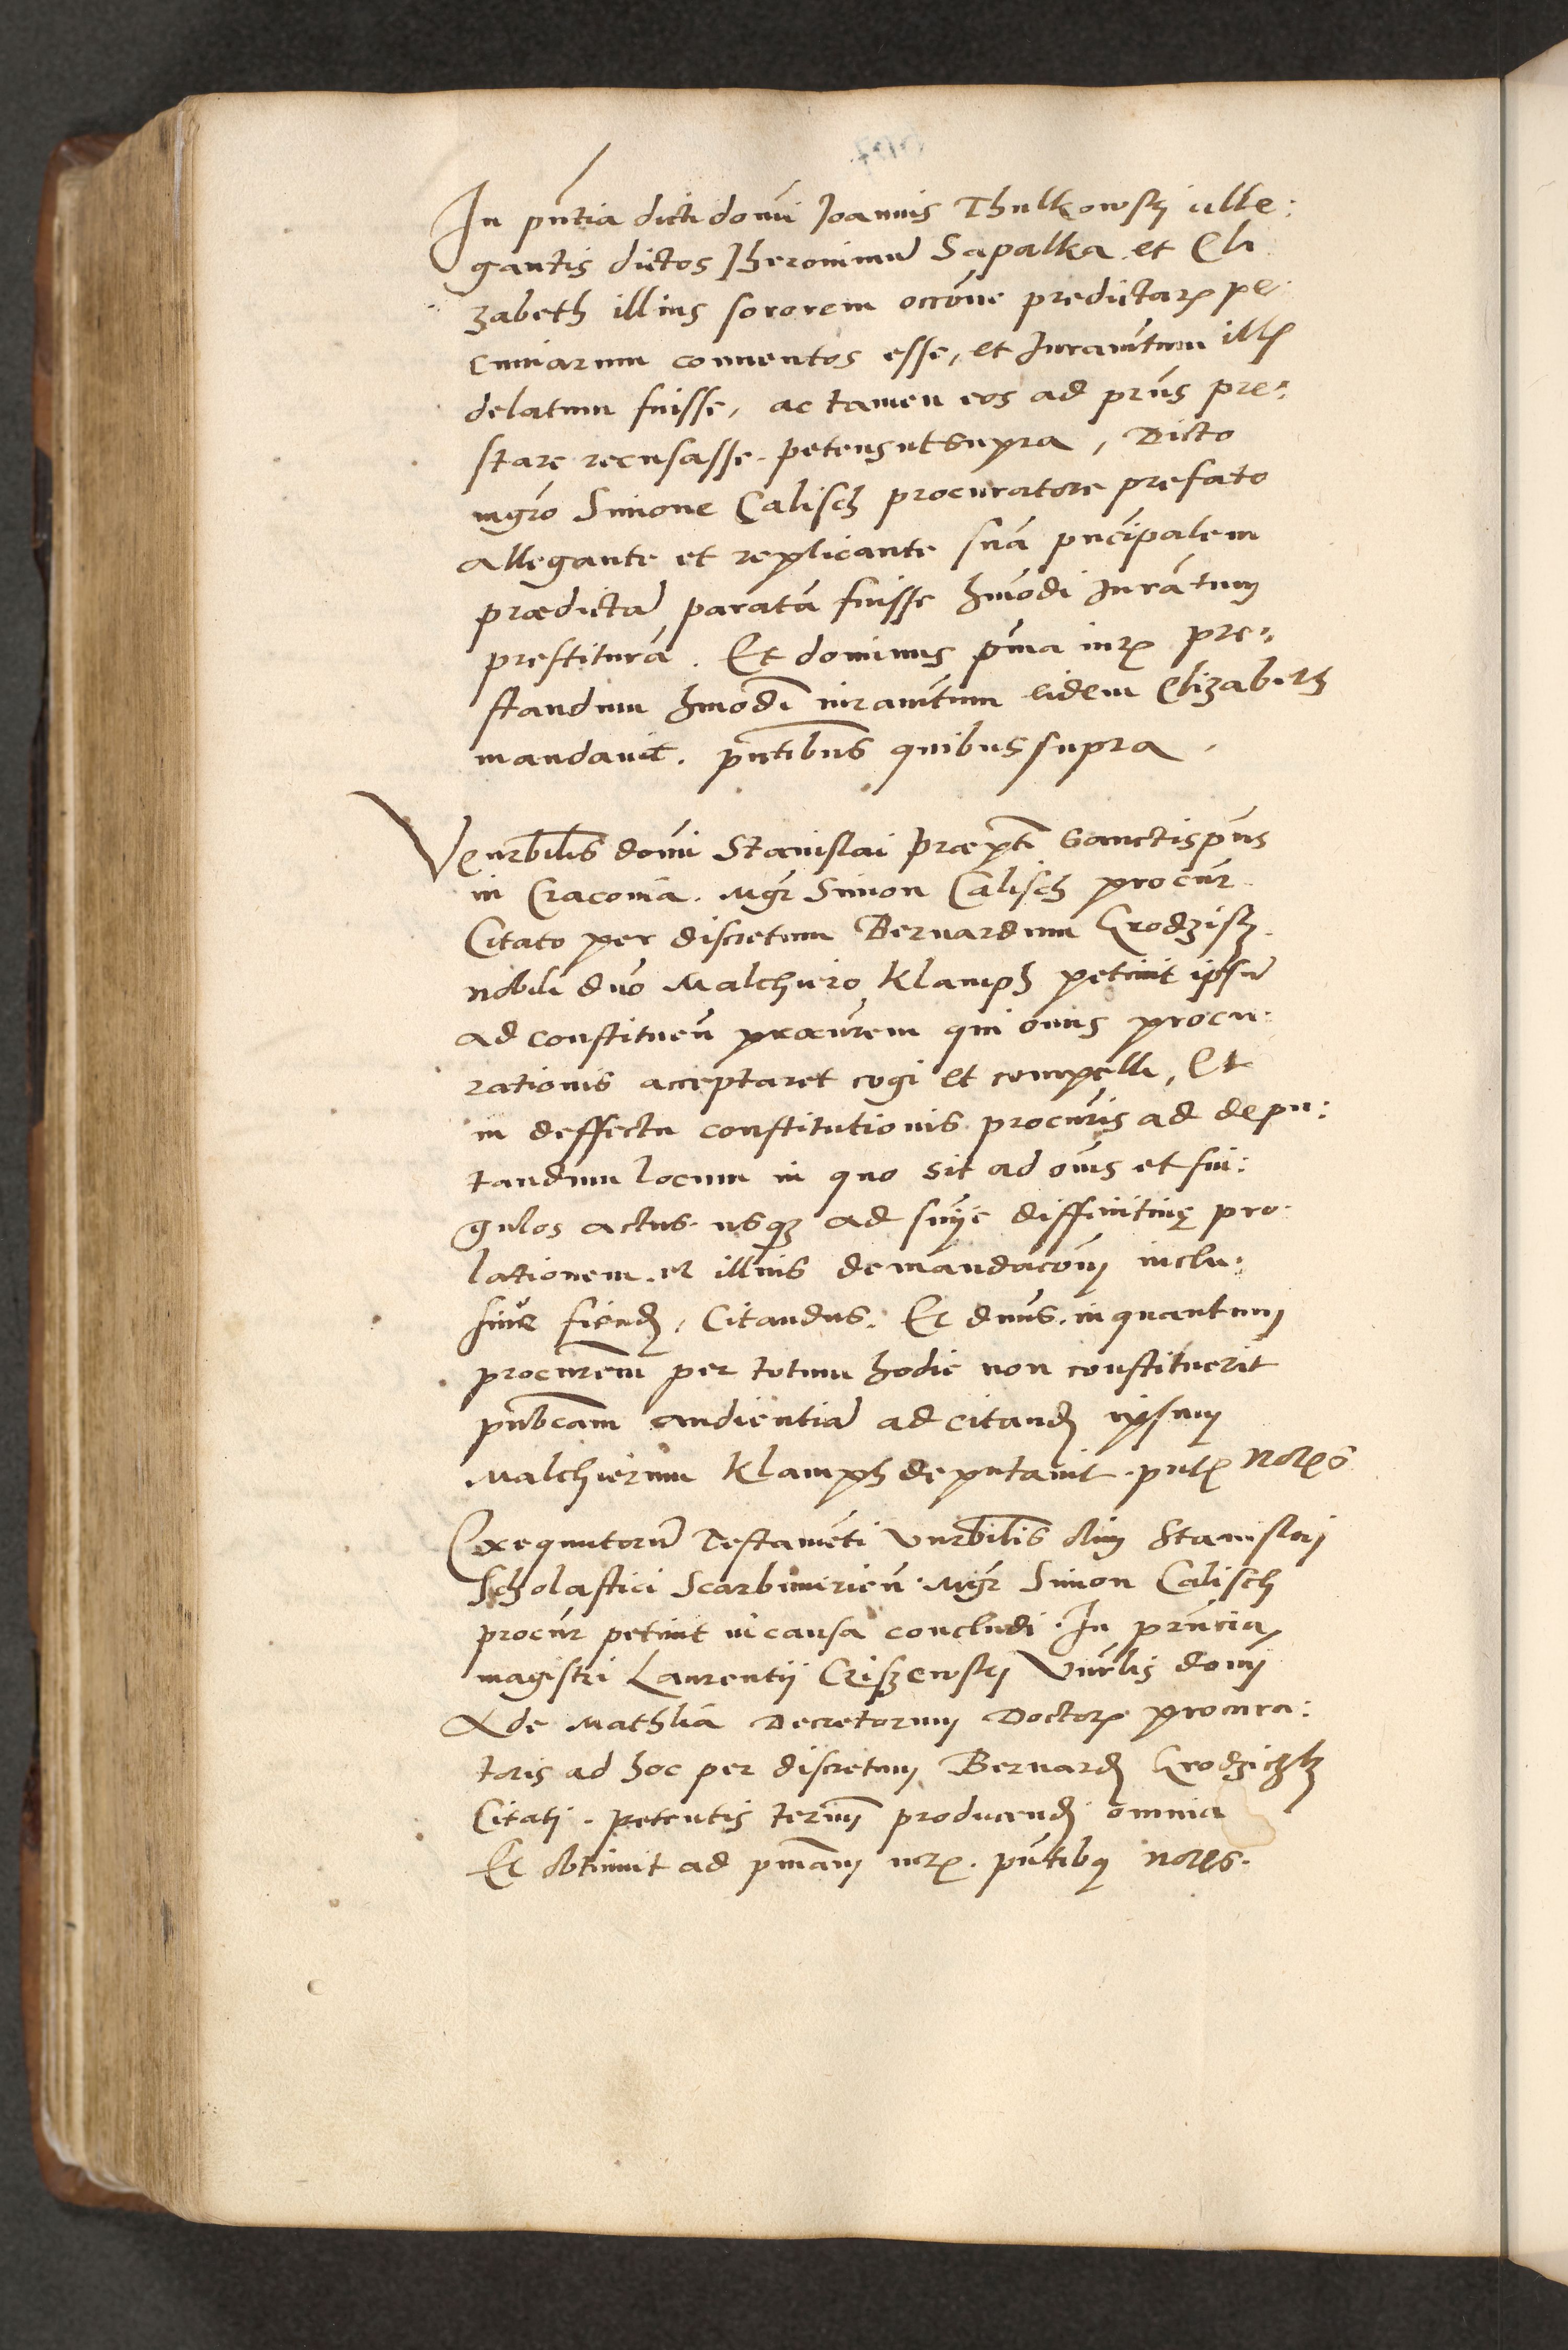 In pñtia dicti domi Joannis Thulkowskj alle:
gantis dictos Jheronimũ Sapalka et Eli
zabeth illius sororem occõne predictarꝫ pe:
cuniarum conuentos esse, et Juramtum illꝭ
delatum fuisse, ac tamen eos ad prũs pre:
stare recusasse petens ut supra, Dicto
mgrõ Simone Calisch procuratore prefato
allegante et replicante suã pncipalem
prædictã paratã fuisse hmõdi Jurãtum
prestiturã. Et dominus pma iurꝫ pre:
standum hmõdi iuramtum eidem Elizabeth
mandauit. pñtibus quibus supra.
Venrbilis domi Stanislai præpti Sanctispũs
in Cracouia. Mgr̃ Simon Calisch procur̃
Citato per discretum Bernardum Grodzisk
nobili dño Malchiero Klamph petiuit ipsũ
ad constituen̄ procurem qui onus procu:
rationis acceptaret cogi et compelli, Et
in deffectu constitutionis procuris ad depu:
tandum locum in quo sit ad om̃s et sin:
gulos actus usqꝫ ad sniẽ diffinitiuę pro:
lationem et illius demandacom̃ inclu:
siue fiend̄, Citandus. Et dnus. in quantum
procurem per totum hodie non constituerit
publicam audientiã ad citand̄ ipsum
Malchierum Klamph deputauit. pntꝭ Notꝭs
Exequutorũ Testamẽti vnrbilis olim Stanislaj
Scholastici Scarbimirien̄. Mgr̃ Simon Calisch
procur̃ petiuit in causa concludi. In pñcia
magistri Laurentij Criszewskj vnrlis domi
A de Mathlia Decretorum Doctorꝭ procura:
toris ad hoc per discretum Bernard̄ Grodziczk
Citatj. petentis termi producend̄ omnia
Et obtinuit ad pmam iurꝫ. pñtibꝫ Notꝭs.